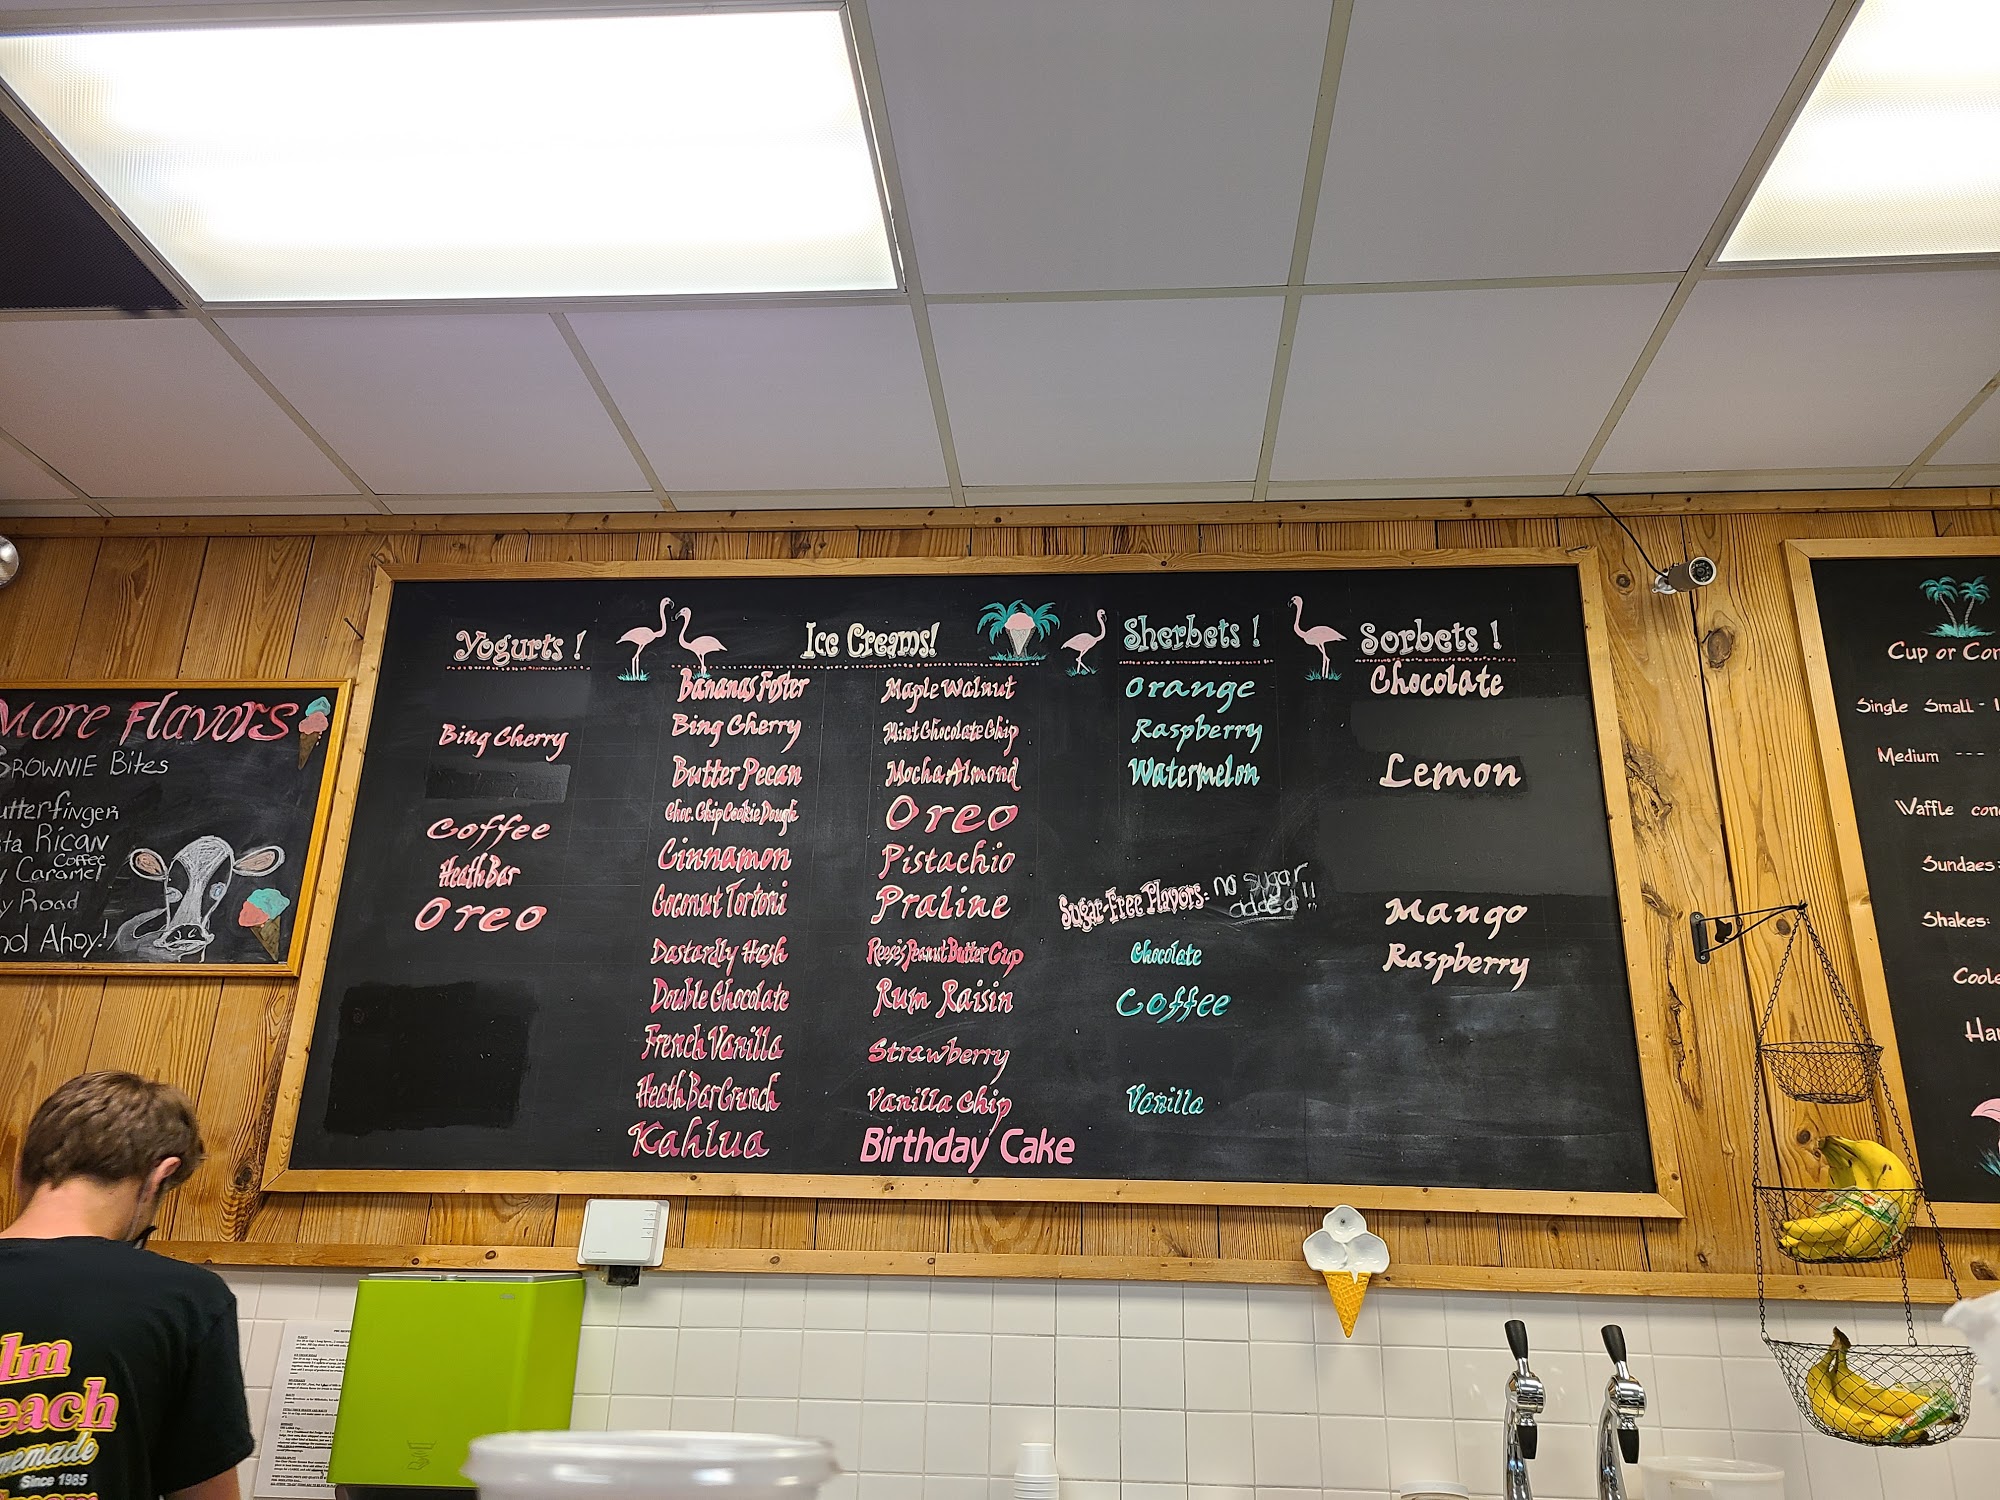 More Flavors
Brownie Bites
utterfinger
ta Rican
Coffee
y Caramel
y Road
Ahoy!
Yogurts !
Bing Cherry
Coffee
Heath Bar
Oreo
Ice Creams!
Bananas Foster
Bing Cherry
Butter Pecan
Choc. Chip Cookie Dough
Cinnamon
Coconut Tortoni
Dastardly Hash
Double Chocolate
French Vanilla
Heath Bar Crunch
Kahlua
Maple Walnut
Mint Chocolate Chip
Mocha Almond
Oreo
Pistachio
Praline
Reese's Peanut Butter Cup
Rum Raisin
Strawberry
Vanilla Chip
Birthday Cake
Sherbets !
Orange
Raspberry
Watermelon
Sugar-Free Flavors: no sugar
added!!
Chocolate
Coffee
Vanilla
Sorbets !
Chocolate
Lemon
Mango
Raspberry
Cup or Con
Single Small - 1
Medium ---
Waffle con
Sundaes:
Shakes:
Coole
Ha
lm
each
memade
Since 1985